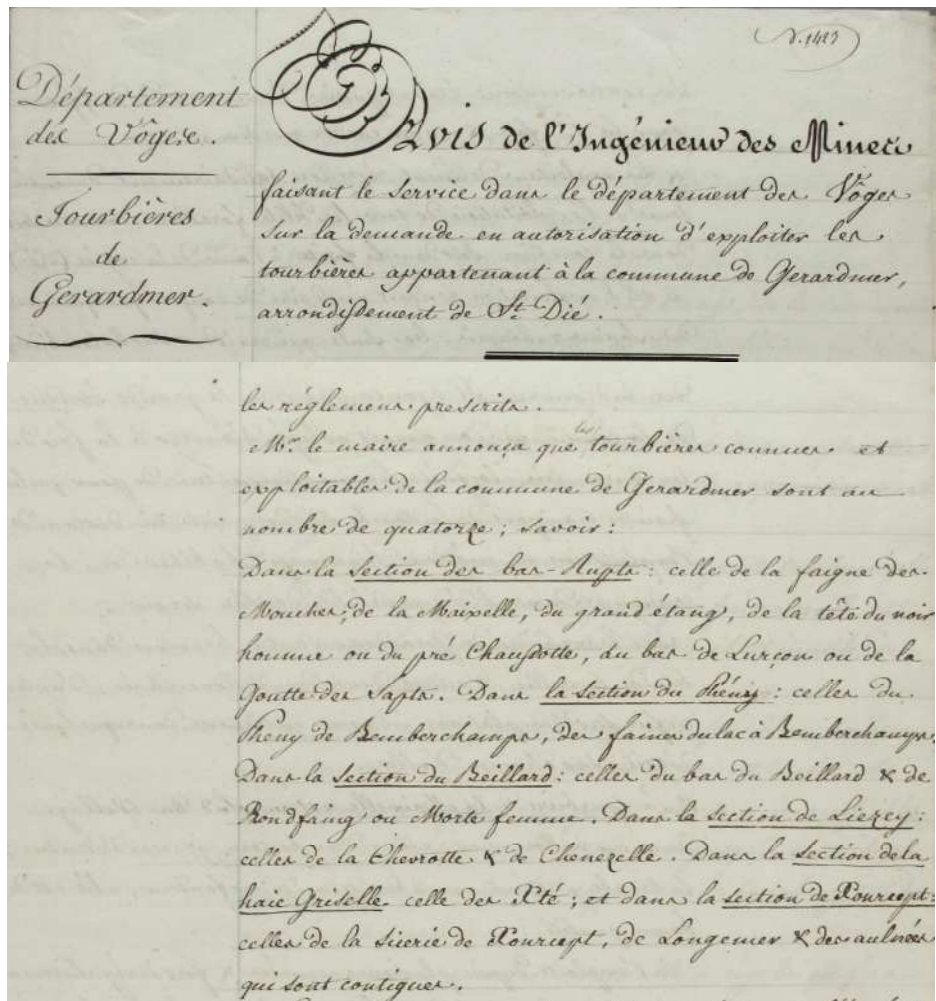 N. 1423
Département
des Vôges.
Tourbières
de
Gerardmer.
Avis de l'Ingénieur des Mines
faisant le service dans le département des Vôges
sur la demande en autorisation d'exploiter les
tourbières appartenant à la commune de Gerardmer,
arrondissement de St. Dié.
les réglemens prescrits.
Mr. le maire annonça que les tourbières connues et
exploitables de la commune de Gerardmer sont au
nombre de quatorze ; savoir :
Dans la section des bas-Rupts : celle de la faigne des
Mouches, de la Maixelle, du grand étang, de la tête du noir
homme ou du pré Chaussotte, du bas de Lurçon ou de la
Goutte des Sapts. Dans la section du Phény : celles du
Pheny de Bemberchamps, des faines du lac à Bemberchamps.
Dans la section du Beillard : celles du bas du Beillard & de
Rondfaing ou Morte femme. Dans la section de Liezey :
celles de la Chevrotte & de Chenezelle. Dans la section de la
haie Griselle celle des Xté ; et dans la section de Xourcept :
celles de la scierie de Xourcept, de Longemer & des aulnées
qui sont contigues.